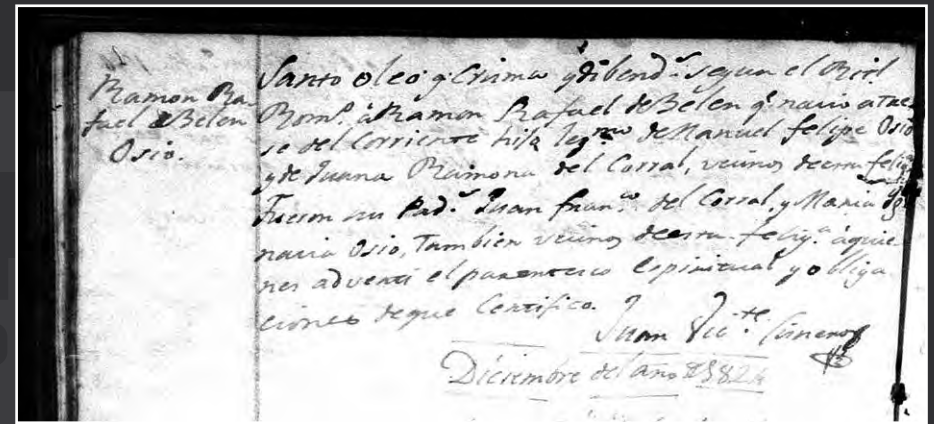 Ramon Ra-
fael de Belen
Osio.
Santo oleo y Crisma y di bendn. segun el Ritl
Romo. à Ramon Rafael de Belen q. nacio a tre-
se del Corriente hijo legmo de Manuel felipe Osio
y de Juana Raimona del Corral, vecinos de esta felig.
fueron sus Pads. Juan franco. del Corral, y Maria Yg-
nacia Osio, Tambien vecinos de esta felig.a à quie-
nes adverti el parentesco Espiritual y obliga-
ciones de que Certifico.
Juan Victe. Cisneros
Diciembre del año de 1824